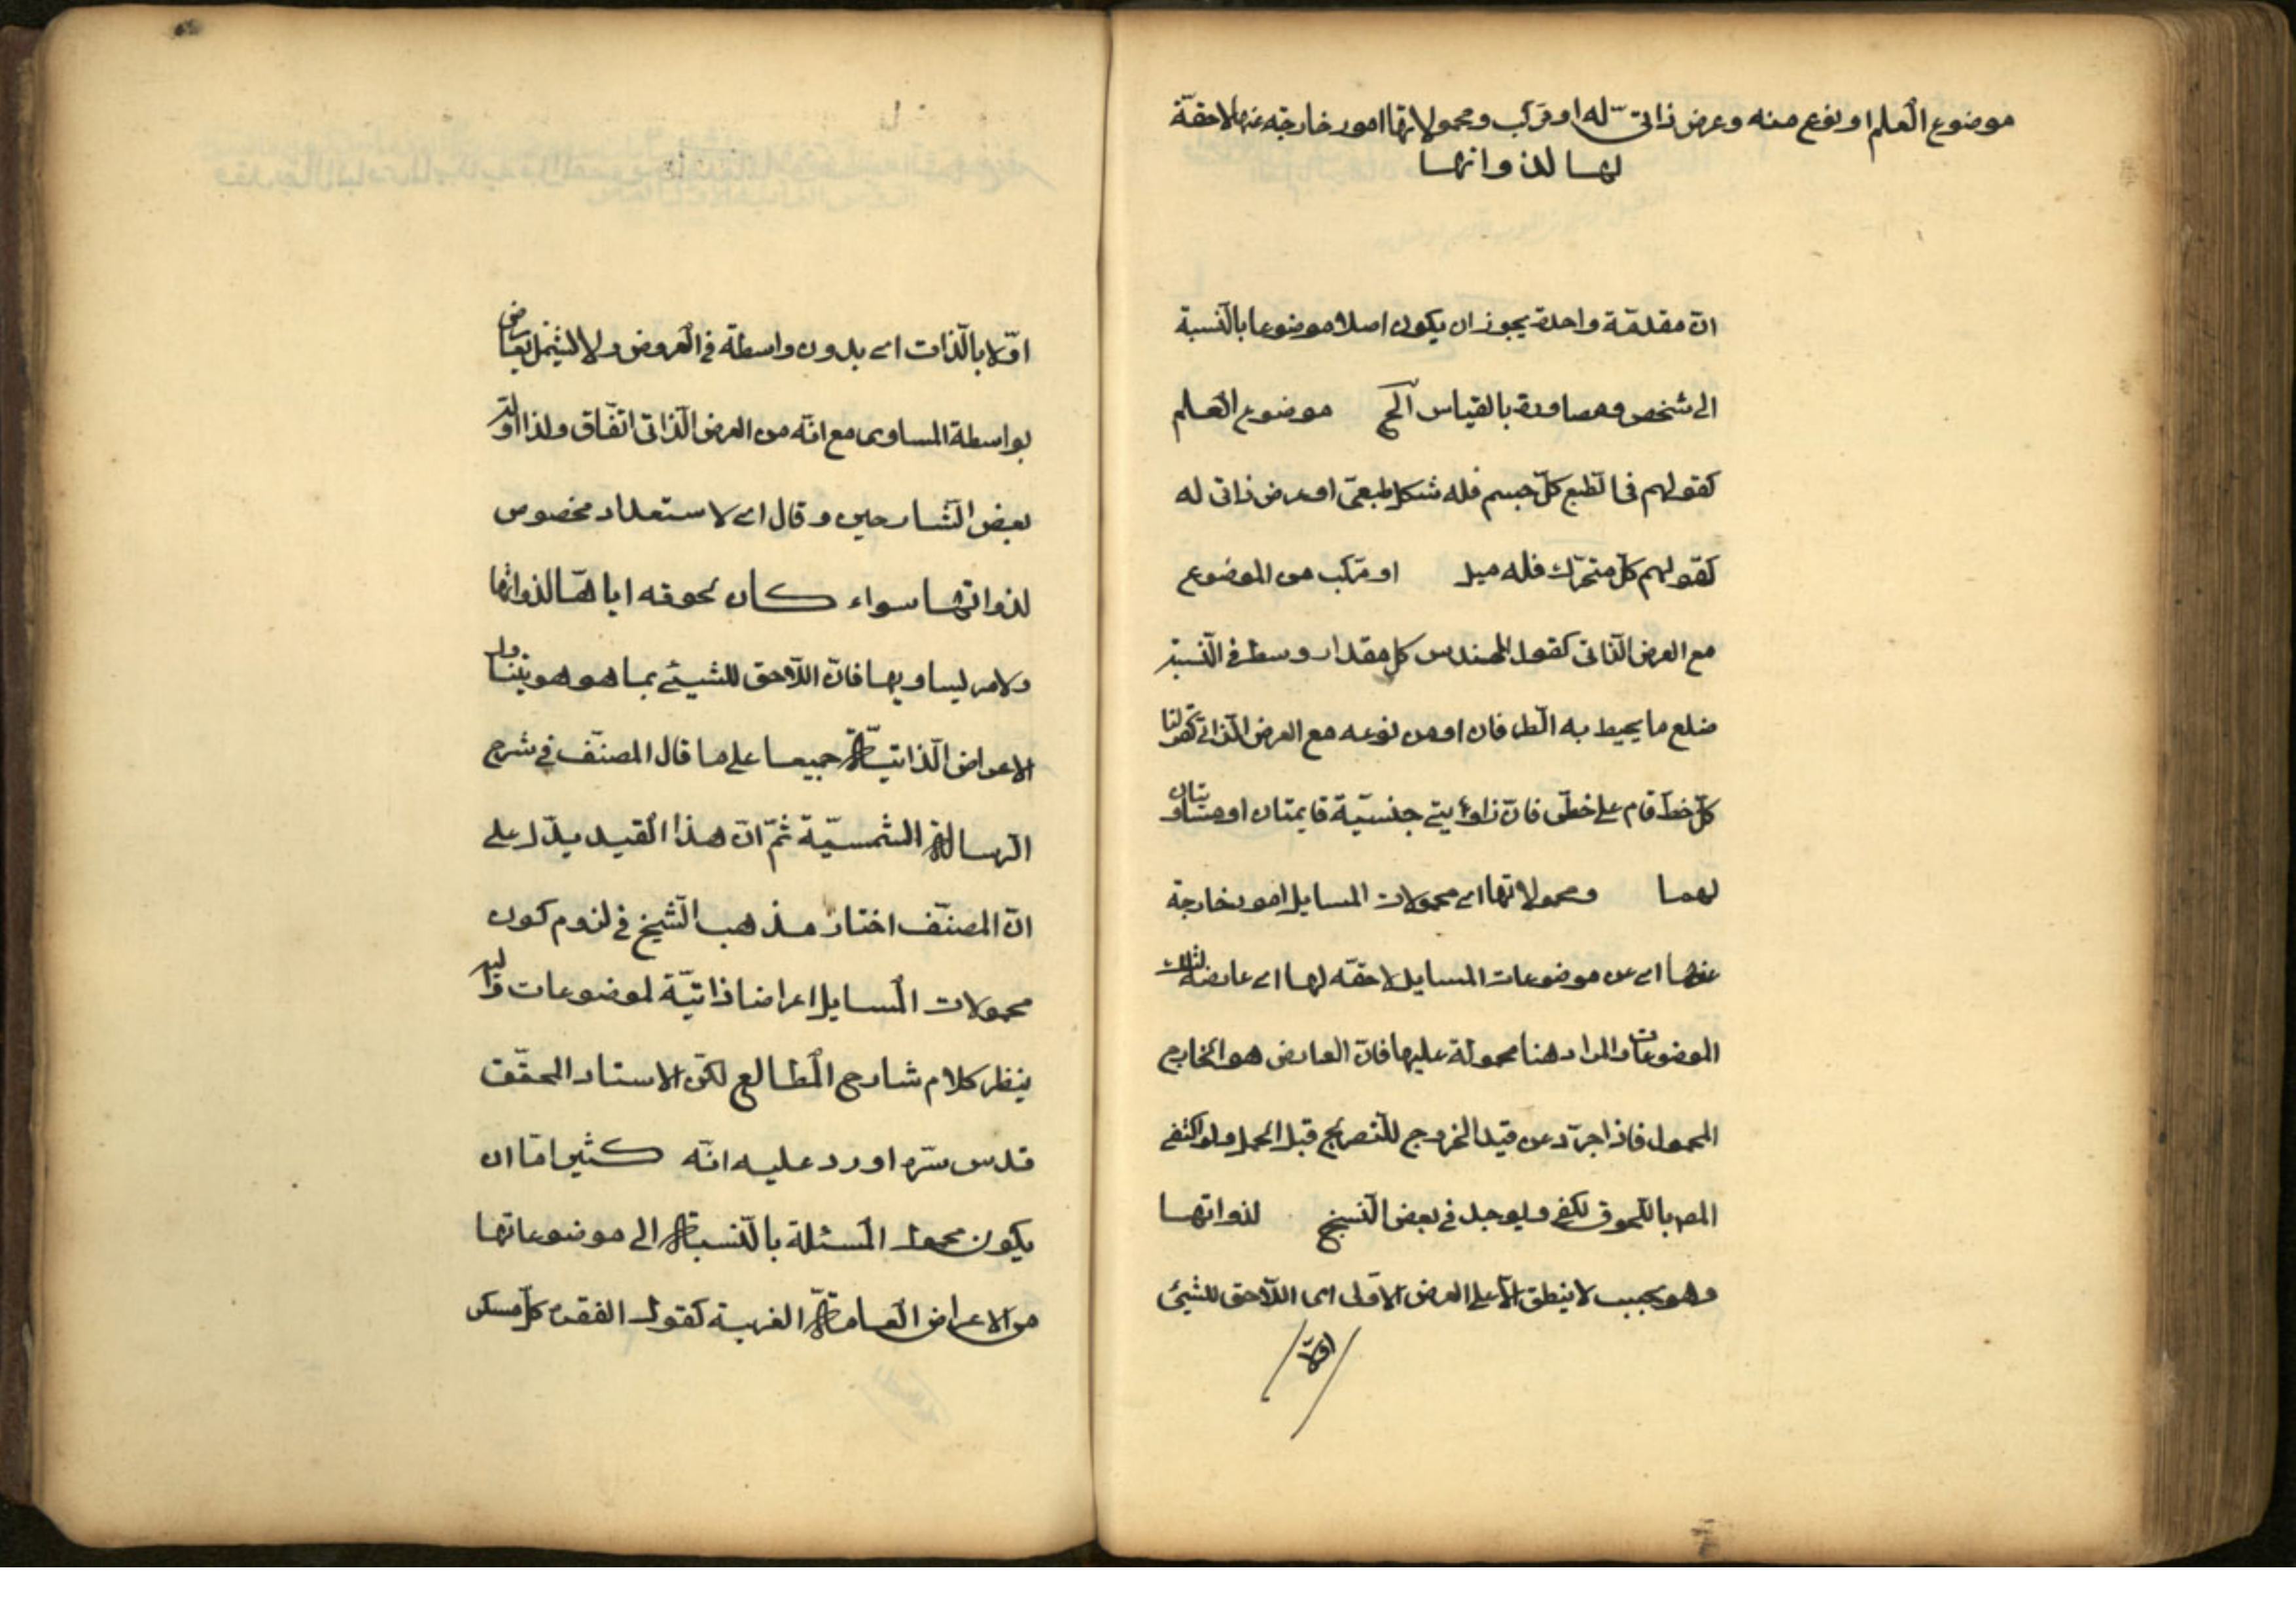 موضوع العلم او نوع منه وعرض ذاتى له او مركب ومحمولاتها امور خارجة عنها لاحقة
لها لذواتها
ان مقدمة واحدة يجوز ان يكون اصلا موضوعا بالنسبة
الى شخص ومصادرة بالقياس الى موضوع العلم
كقولهم فى الطبع كل جسم فله شكل طبعى او عرض ذاتى له
كقولهم كل متحرك فله ميل او مركب من الموضوع
مع العرض الذاتى كقول المهندس كل مقدار وسط فى النسبة
ضلع ما يحيط به الطرفان او من نوعه مع العرض الذاتى كقولنا
كل خط قام على خط فان زاويتى جنسية قايمتان او متساويتان
لهما ومحمولاتها اى محمولات المسايل امور خارجة
عنها اى عن موضوعات المسايل لاحقه لها اى عارضة لتلك
الموضوعات والمراد هنا محمولة عليها فان العارض هو الخارج
المحمول فاذا جرد عن قيد الخروج للتصريح قبل الحمل ولو اكتفى
المص باللحوق لكفى ويوجد فى بعض النسخ لذواتها
وهو بحسب لا ينطق الا على العرض الاولى اى اللاحق للشيئ
اولا
اولا بالذات اى بدون واسطة فى العروض ولا يشمل العارض
بواسطة المساوى مع انه من العرض الذاتى اتفاق ولذا اوله
بعض الشارحين وقال اى لاستعداد مخصوص
لذواتها سواء كان لحوقه اياها لذواتها
ولامر يساويها فان اللاحق للشيئ بما هو هو يتناول
الاعراض الذاتية جميعا على ما قال المصنف فى شرح
الرسالة الشمسية ثم ان هذا القيد يدل على
ان المصنف اختار مذهب الشيخ فى لزوم كون
محمولات المسايل اعراضا ذاتية لموضوعات واليه
ينظر كلام شارح المطالع لكن الاستاد المحقق
قدس سره اورد عليه انه كثيرا ما ان
يكون محمول المسئلة بالنسبة الى موضوعاتها
من الاعراض العامة الغريبة كقول الفقهاء كل مسكر